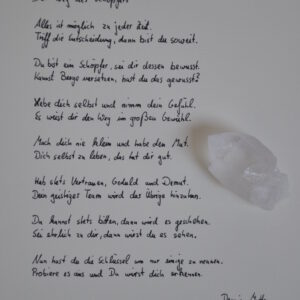 Der Weg des Schöpfers
Alles ist möglich zu jeder Zeit.
Triff die Entscheidung, dann bist du soweit.
Du bist ein Schöpfer, sei dir dessen bewusst.
Kannst Berge versetzen, hast du das gewusst?
Liebe dich selbst und nimm dein Gefühl.
Es weist dir den Weg im großen Gewühl.
Mach dich nie klein und habe den Mut.
Dich selbst zu leben, das tut dir gut.
Hab stets Vertrauen, Geduld und Demut.
Dein geistiger Team wird das Übrige hinzutun.
Du kannst stets bitten, dann wird es geschehen.
Sei ehrlich zu dir, dann wirst du es sehen.
Nun hast du die Schlüssel um nur einige zu nennen.
Probiere es aus und Du wirst dich erkennen.